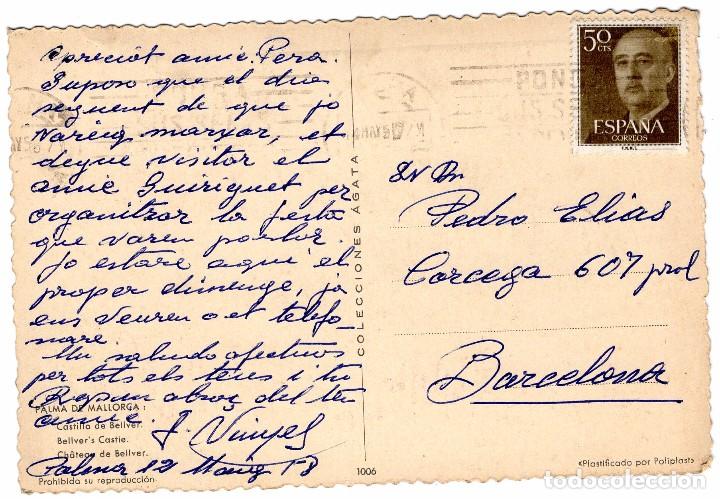 Apreciat amic Pera.
Suposo que el dia
seguent de que jo
vareig marxar, et
degue visitar el
amic Guiriguet per
organitzar la festa
que varem parlar.
Jo estare aqui el
proper diumenge, ja
ens veuren o et telefo-
nare.
Un saludo afectuos
per tots els teus i tu
Rep un abraç del teu
amic.
J. Vinyes
Palma 12 Maig 58
PALMA DE MALLORCA:
Castillo de Bellver.
Bellver's Castle.
Château de Bellver.
Prohibida su reproducción
COLECCIONES ÁGATA
1006
50
CTS
ESPAÑA
CORREOS
PONG
Sr Dn
Pedro Elias
Corcega 607 pral
Barcelona
«Plastificado por Poliplast»
todocoleccion